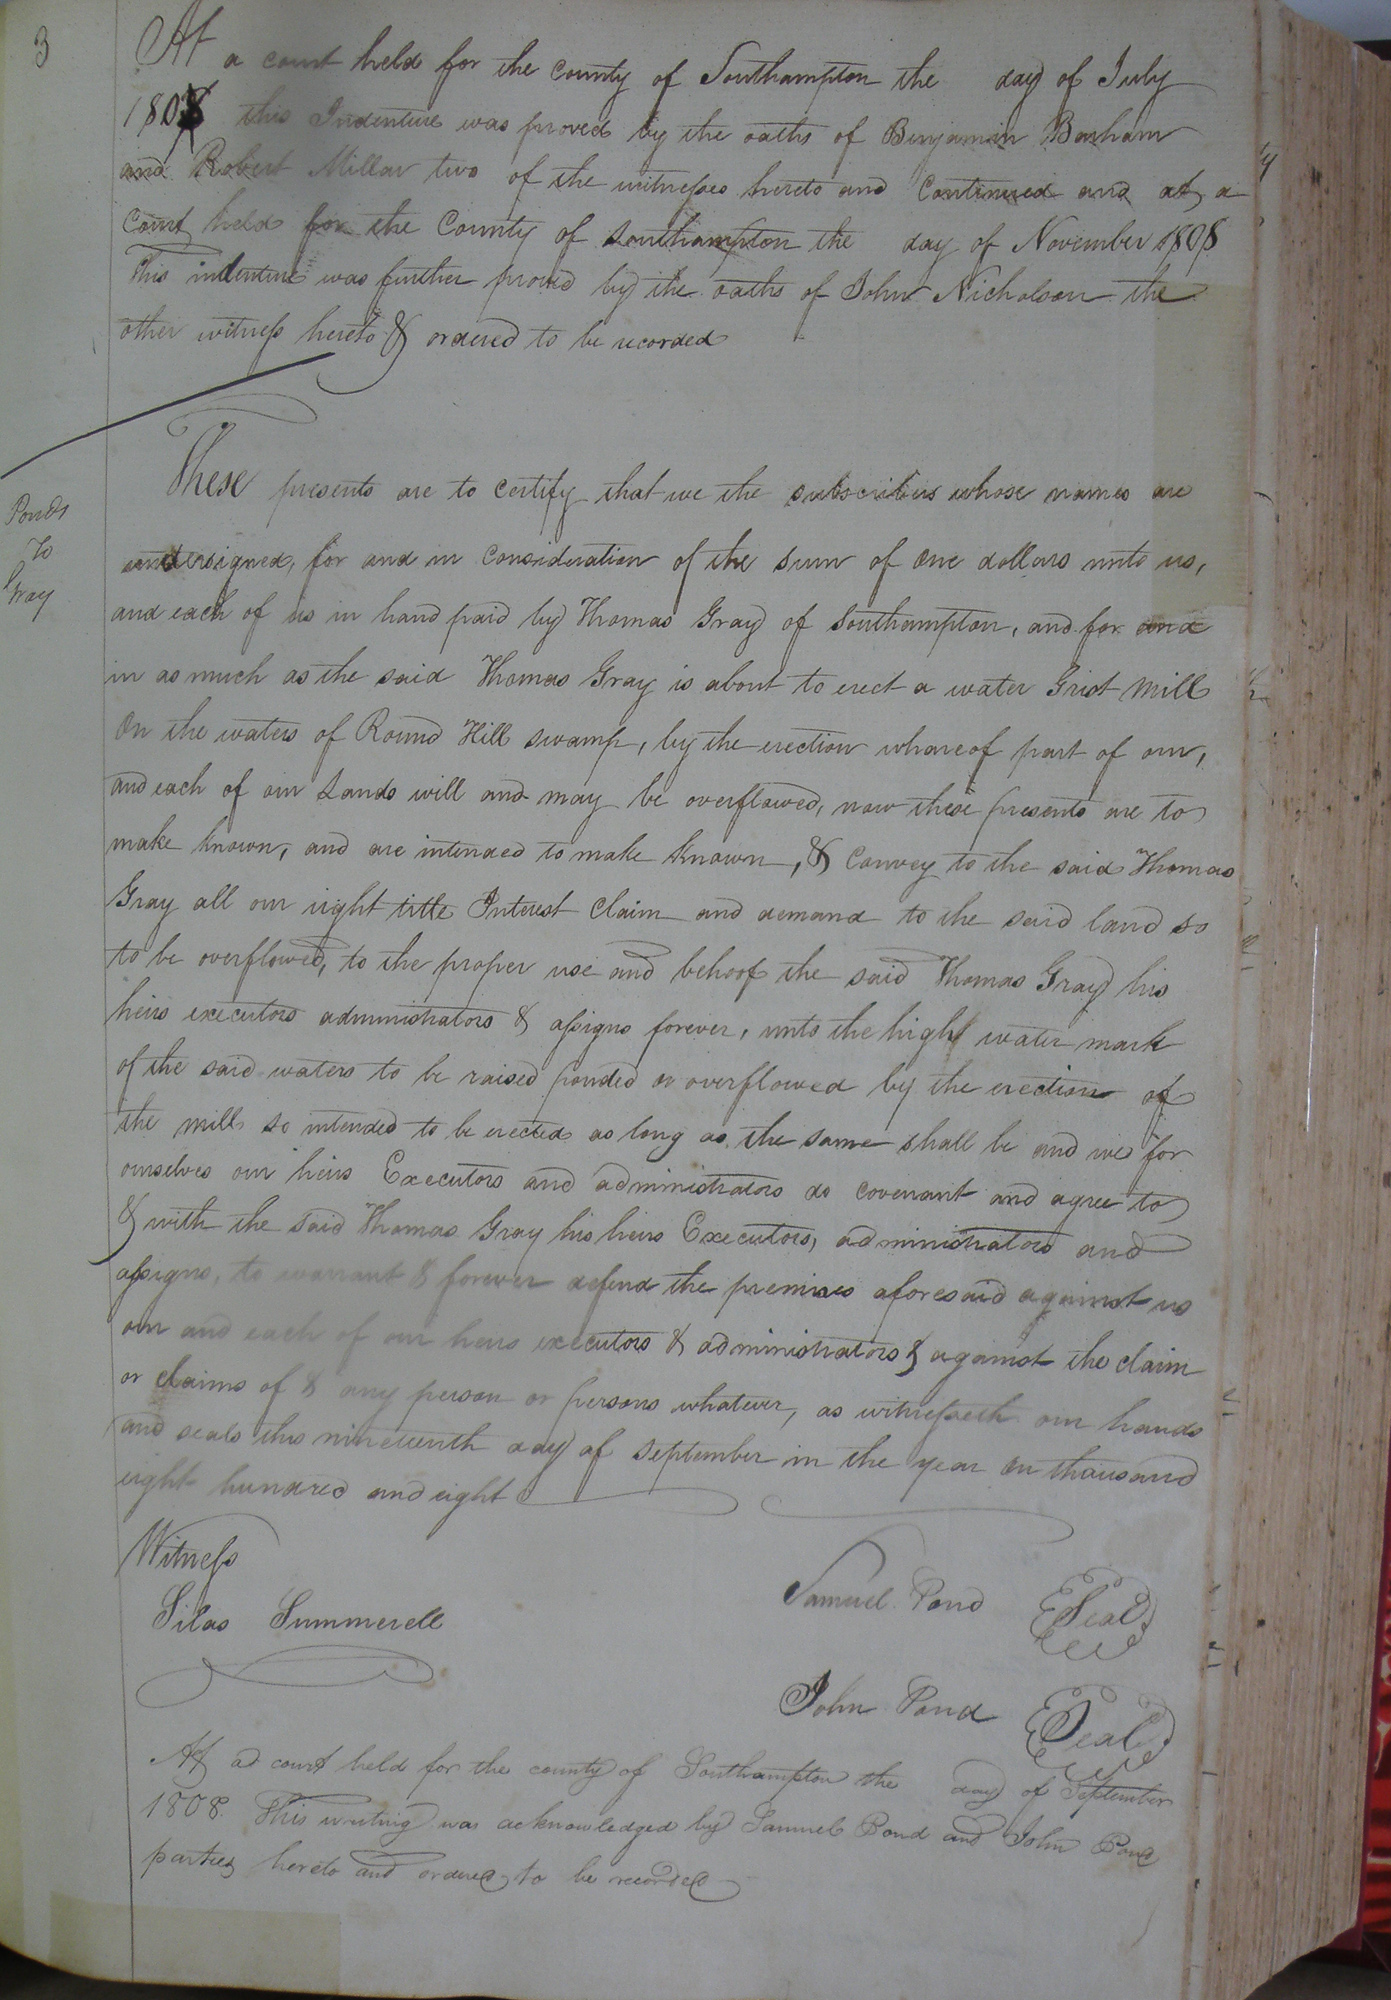 3
At a court held for the county of Southampton the day of July
1808 this Indenture was proved by the oaths of Benjamin Barham
and Robert Millar two of the witnesses hereto and Continued and at a
Court held for the County of Southampton the day of November 1808
This indenture was further proved by the oaths of John Nicholson the
other witness hereto & ordered to be recorded
Ponds
to
Gray
These presents are to certify that we the subscribers whose names are
undersigned, for and in consideration of the sum of One dollars unto us,
and each of us in hand paid by Thomas Gray of Southampton, and for and
in as much as the said Thomas Gray is about to erect a water Grist Mill
On the waters of Round Hill swamp, by the erection whareof part of our,
and each of our Lands will and may be overflowed, now these presents are to
make known, and are intended to make known, & Convey to the said Thomas
Gray all our right title Interest Claim and demand to the said land so
to be overflowed, to the proper use and behoof the said Thomas Gray his
heirs executors administrators & assigns forever, unto the high water mark
of the said waters to be raised ponded or overflowed by the erection of
the mill so intended to be erected as long as the same shall be and we for
ourselves our heirs Executors and administrators do covenant and agree to
& with the said Thomas Gray his heirs Executors, administrators and
assigns, to warrant & forever defend the premises aforesaid against us
our and each of our heirs executors & administrators & against the claim
or claims of & any person or persons whatever, as witnesseth our hands
and seals this nineteenth day of September in the year On thousand
eight hundred and eight
Witness
Silas Summerell
Samuel Pond Seal
John Pond Seal
At ad court held for the county of Southampton the day of September
1808. This writing was acknowledged by Samuel Pond and John Pond
parties hereto and ordered to be recorded